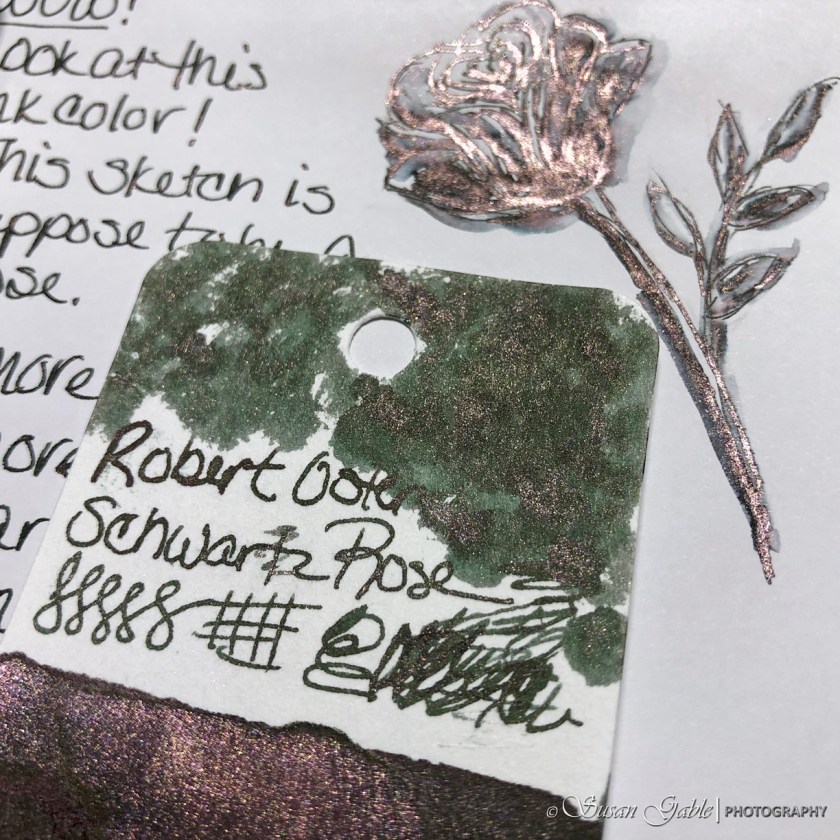 wow!
ook at this
nk color!
his sketch is
ppose to be a
ose.
more
Robert Oster
Schwartz Rose
© Susan Gable | PHOTOGRAPHY